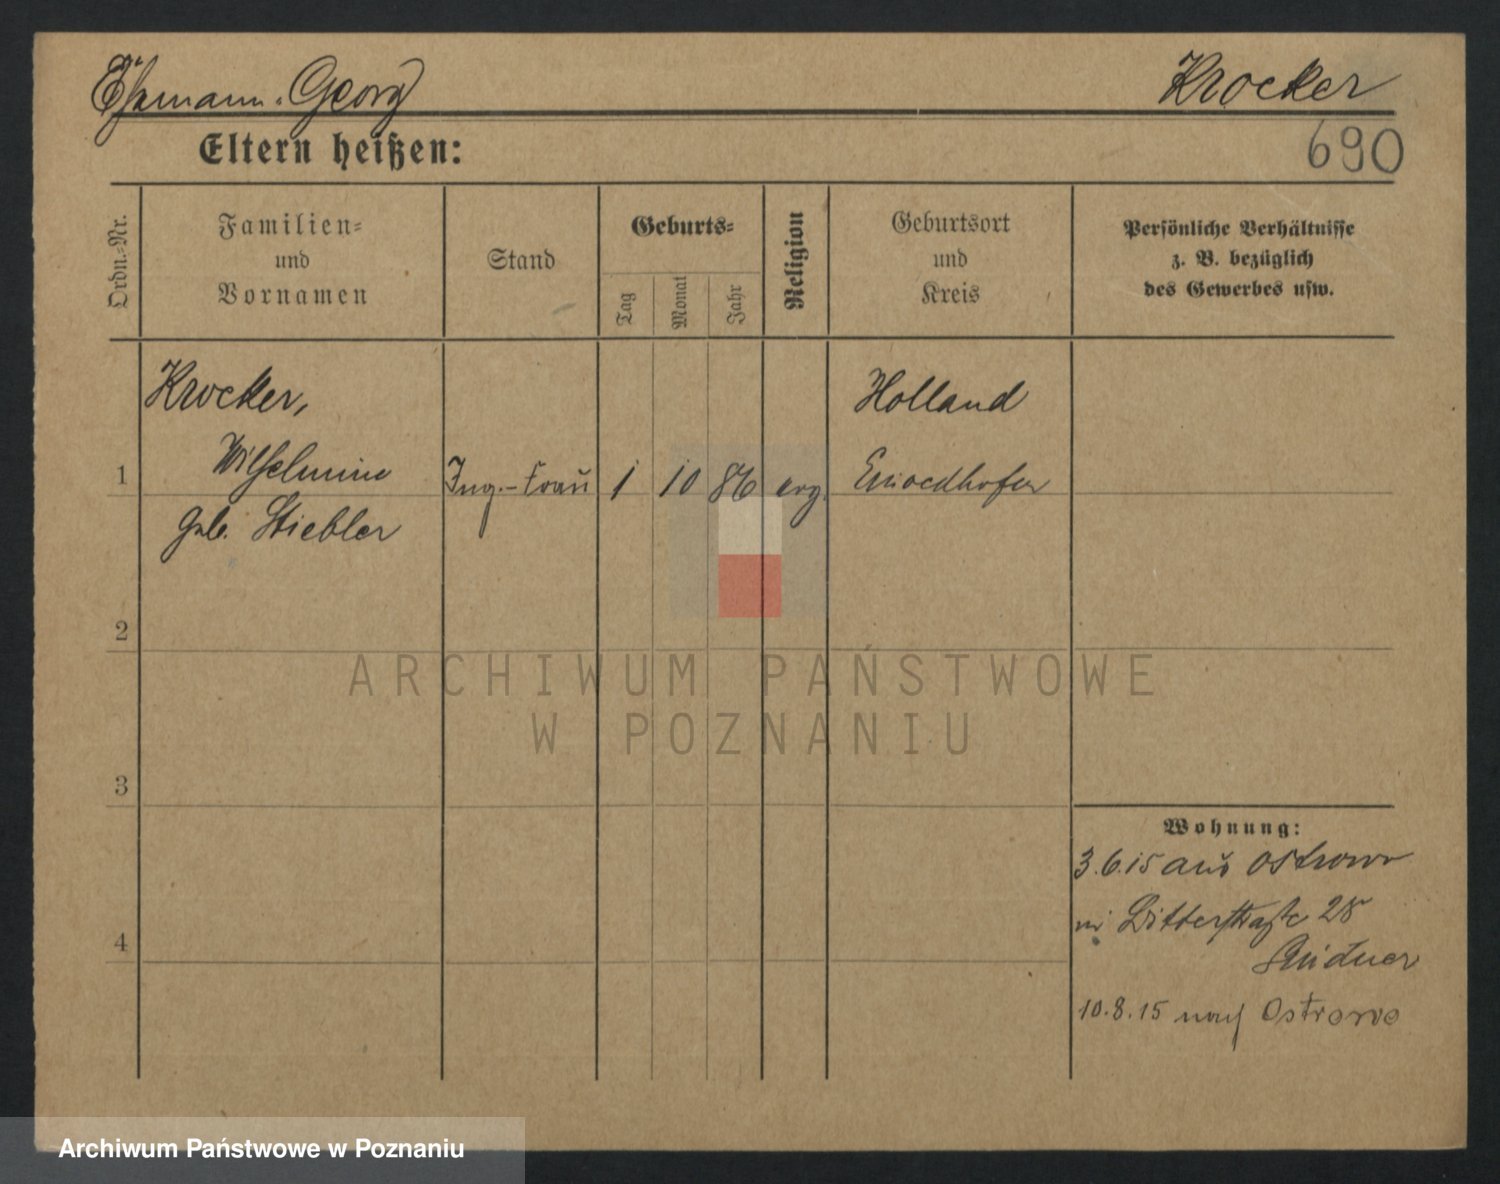 Ehemann: Georg
Krocker
690
Eltern heißen:
Ordn.-Nr.
Familien-
und
Vornamen
Stand
Geburts-
Tag
Monat
Jahr
Religion
Geburtsort
und
Kreis
Persönliche Verhältnisse
z. B. bezüglich
des Gewerbes usw.
1
Krocker,
Wilhelmine
geb. Stiebler
Ing.-Frau
1
10
86
evg.
Holland
2
3
4
Wohnung:
3.6.15 aus Ostrowo
Ritterstraße 28
10.8.15 nach Ostrowo
ARCHIWUM PAŃSTWOWE
W POZNANIU
Archiwum Państwowe w Poznaniu